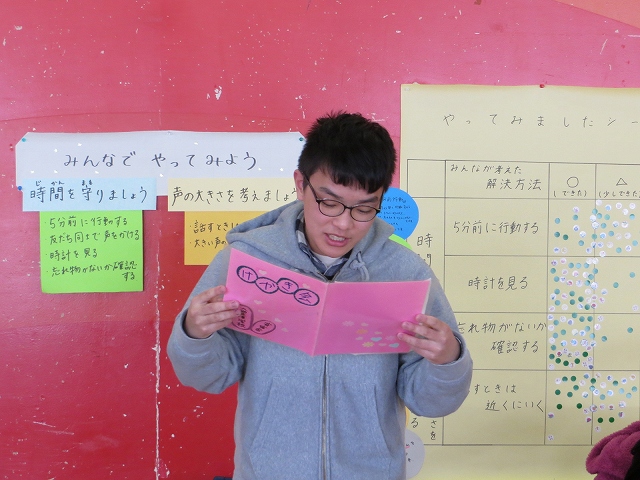 みんなで やってみよう
時間を守りましょう
じ かん まも
・5分前に行動する
友だち同士で声をかける
時計を見る
・忘れ物がないか確認
する
声の大きさを考えましょ
話すときは
大きい声の
けやき会
やってみましたシー
みんなが考えた
解決方法
○
(できた)
△
(少しできた)
5分前に行動する
時計を見る
忘れ物がないか
確認する
すときは
近くにいく
時
さ
を